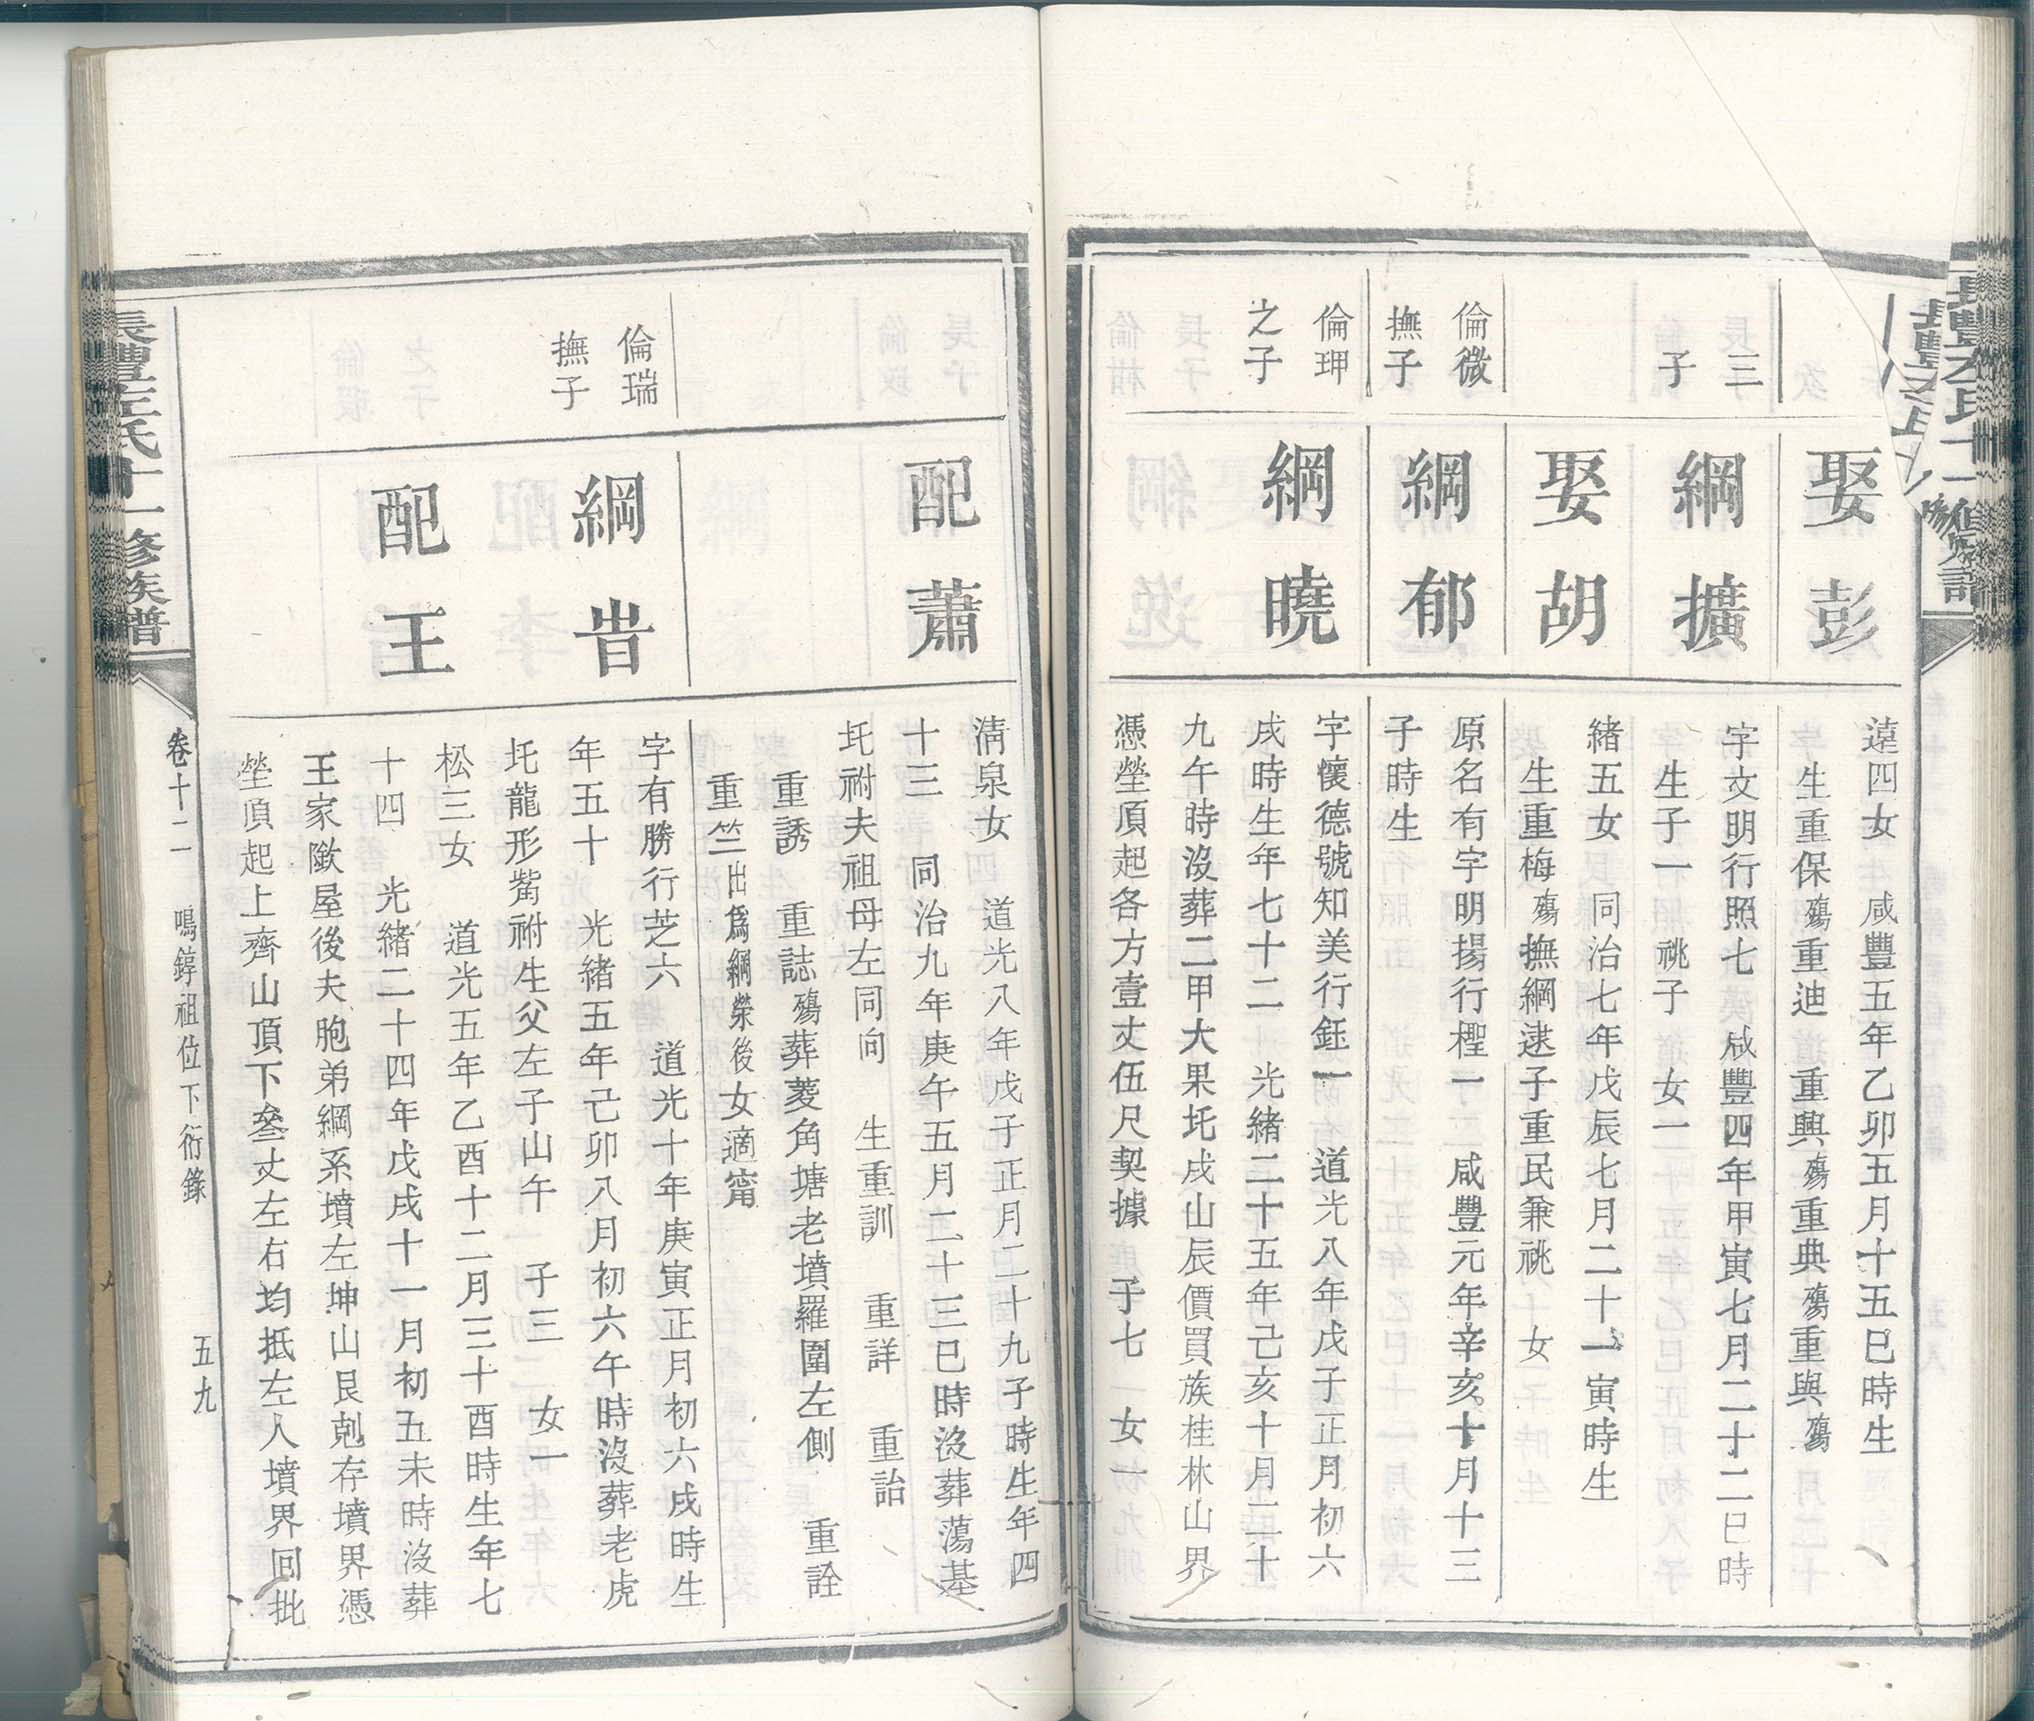 娶彭
遠四女　咸豐五年乙卯五月十五巳時生
生重保殤重迪　重興殤重典殤重與殤
三子
綱擴
字文明行照七　咸豐四年甲寅七月二十二巳時
生子一　祧子　女一
娶胡
緒五女　同治七年戊辰七月二十一寅時生
生重梅殤撫綱逮子重民兼祧　女
倫微
撫子
綱郁
原名有字明揚行檉一　咸豐元年辛亥十月十三
子時生
倫玾
之子
綱曉
字懷德號知美行鈺一　道光八年戊子正月初六
戌時生年七十二　光緒二十五年己亥十月二十
九午時沒葬二甲大果圫戌山辰價買族桂林山界
憑塋頂起各方壹丈伍尺契據　子七　女一
配蕭
淸泉女　道光八年戊子正月二十九子時生年四
十三　同治九年庚午五月二十三巳時沒葬蕩基
圫祔夫祖母左同向　生重訓　重詳　重詒
重誘　重誌殤葬菱角塘老墳羅圍左側　重詮
重竺出爲綱榮後女適甯
倫瑞
撫子
綱旹
字有勝行芝六　道光十年庚寅正月初六戌時生
年五十　光緒五年己卯八月初六午時沒葬老虎
圫龍形觜祔生父左子山午　子三　女一
配王
松三女　道光五年乙酉十二月三十酉時生年七
十四　光緒二十四年戊戌十一月初五未時沒葬
王家隞屋後夫胞弟綱系墳左坤山艮剋存墳界憑
塋頂起上齊山頂下叄丈左右均抵左人墳界回批
長豐左氏十一修族譜
卷十二　鳴錞祖位下衍錄　五九